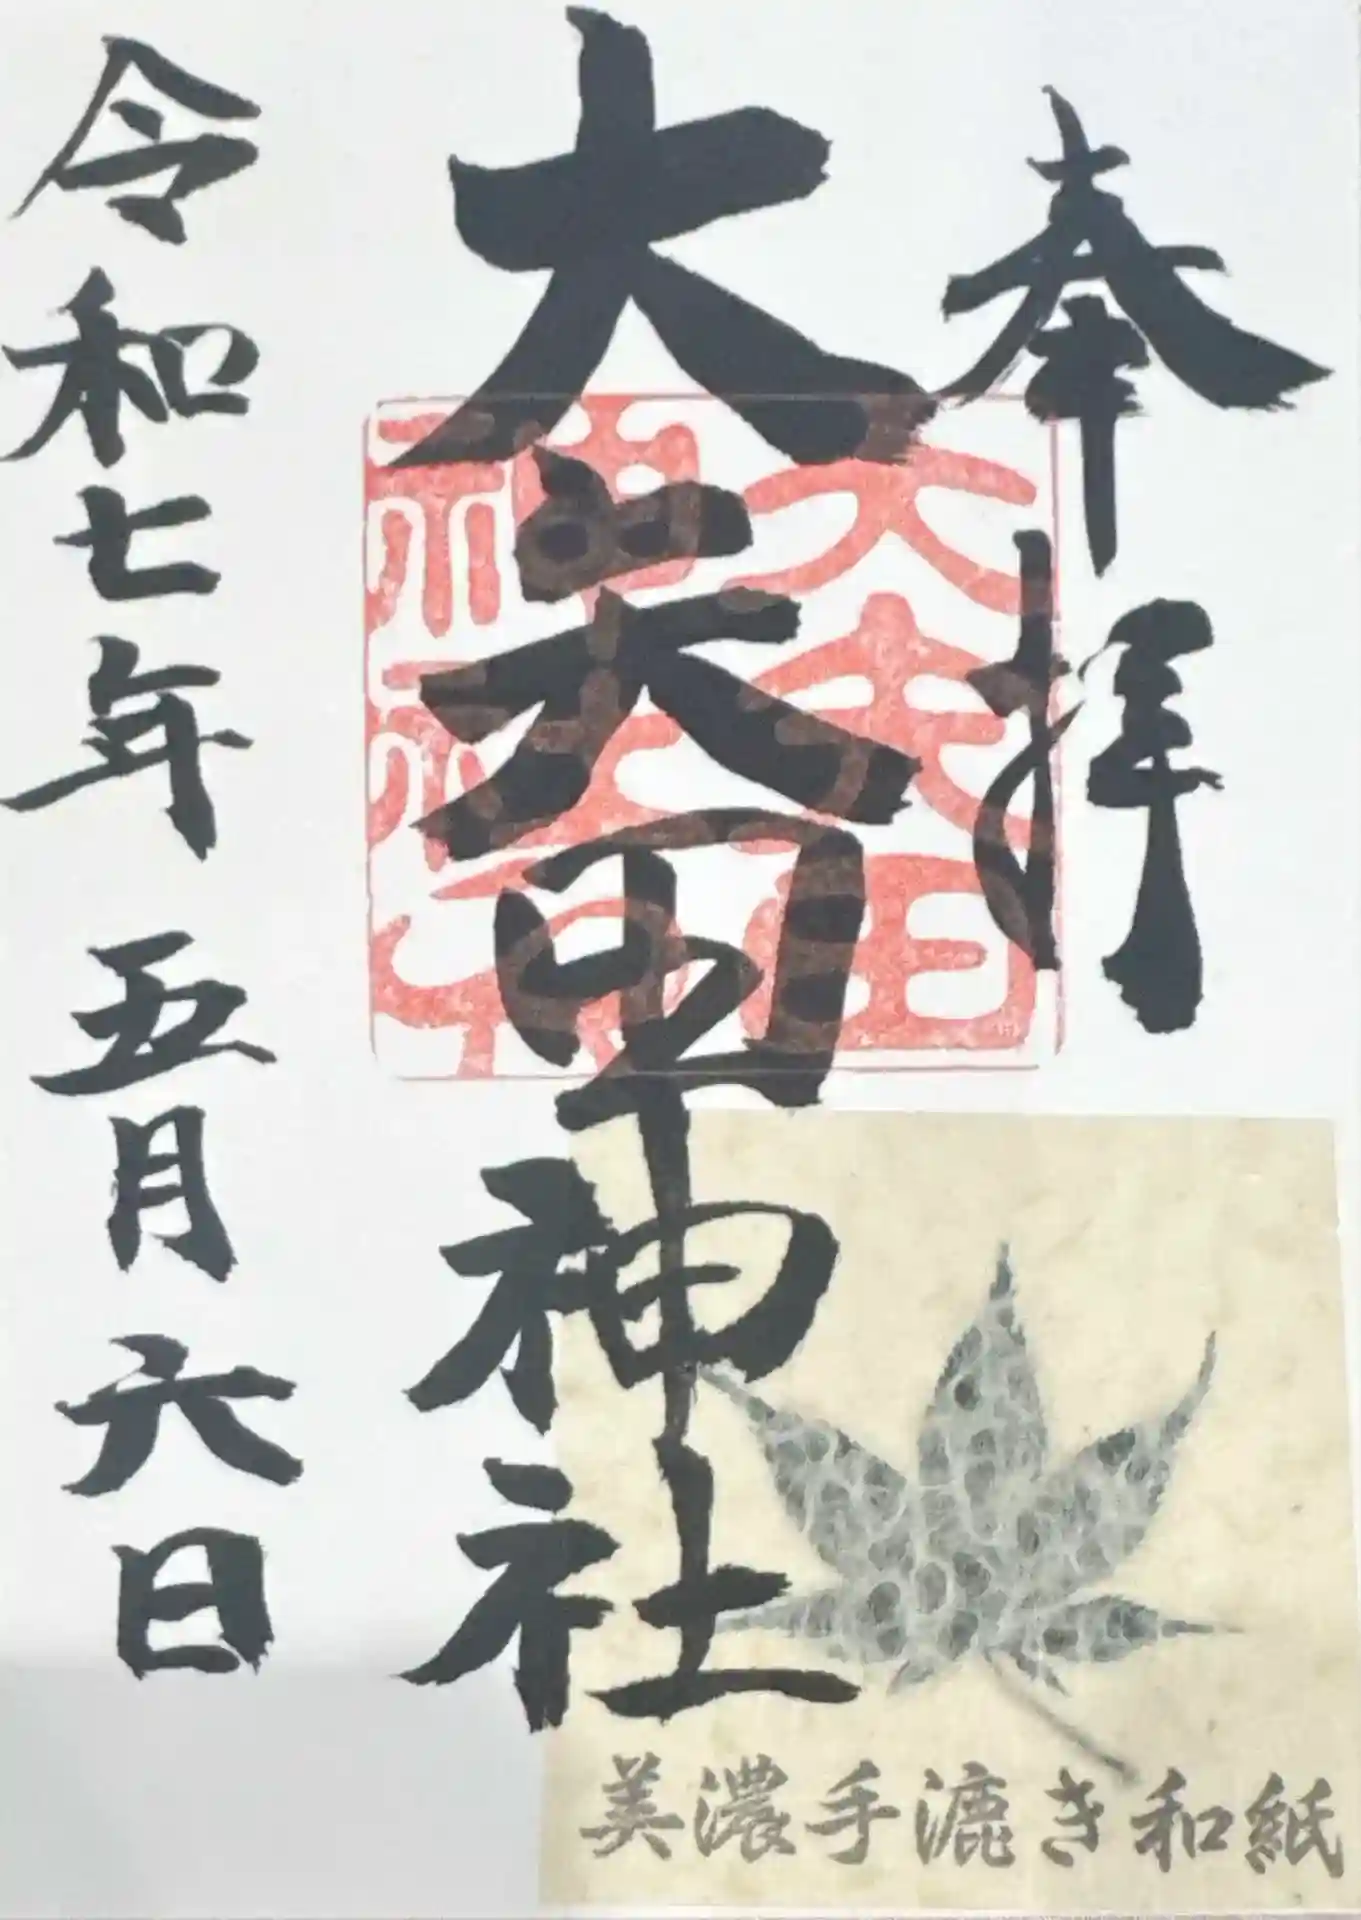 奉拝
大矢田神社
大矢田
神社印
令和七年 五月六日
美濃手漉き和紙